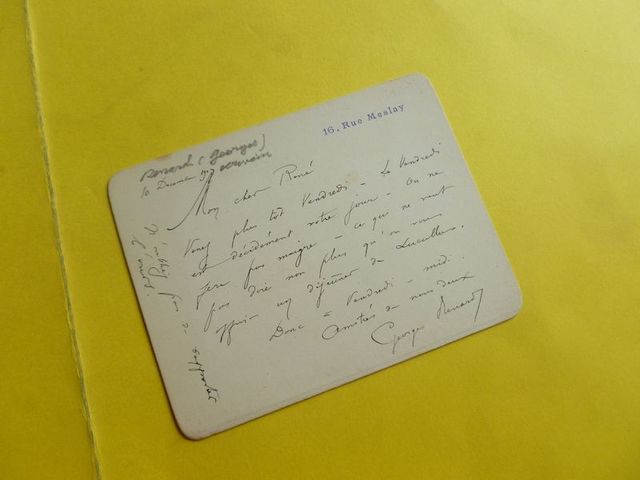 16, Rue Meslay
Renard (Georges)
10 Decembre
écrivain
Mon cher René
Venez plus tôt Vendredi - Le Vendredi
est décidément votre jour - On ne
fera pas maigre - ce qui ne veut
pas dire non plus qu'on vous
offrira un déjeuner de Lucullus.
Donc à Vendredi - midi.
Amitiés de nous deux
Georges Renard
N'oubliez pas de rapporter
l'ours.